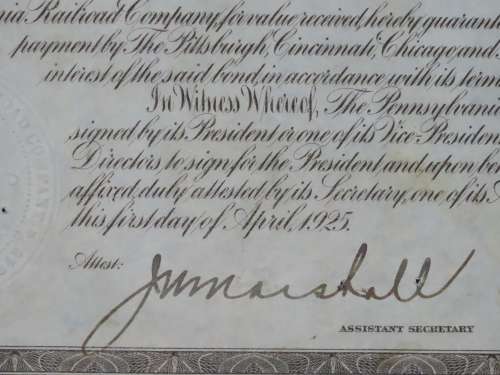 nia Railroad Company, for value received, hereby guarant
payment by The Pittsburgh, Cincinnati, Chicago and
interest of the said bond, in accordance with its term
In Witness Whereof, The Pennsylvania
signed by its President or one of its Vice-Presiden
Directors to sign for the President, and upon be
affixed, duly attested by its Secretary, one of its A
this first day of April, 1925.
Attest:
JW Marshall
ASSISTANT SECRETARY